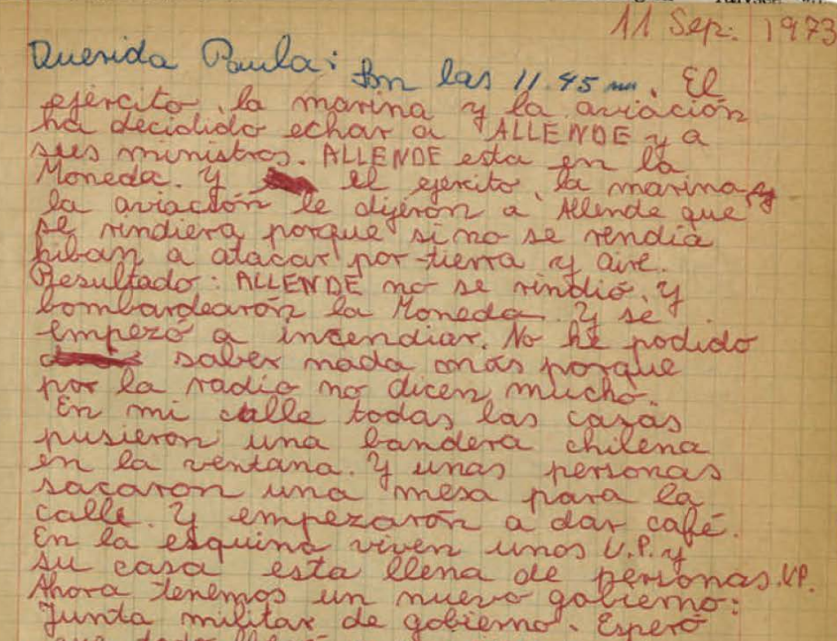 11 Sep. 1973
Querida Paula: Son las 11.45 m. El
ejército, la marina y la aviación
ha decidido echar a ALLENDE y a
sus ministros. ALLENDE esta en la
Moneda. Y el ejercito, la marina y
la aviación le dijerón a Allende que
se rindiera porque si no se rendía
hiban a atacar por tierra y aire.
Resultado: ALLENDE no se rindió. Y
bombardearón la Moneda. Y se
empezó a incendiar. No he podido
saber nada más porque
por la radio no dicen mucho.
En mi calle todas las casas
pusieron una bandera chilena
en la ventana. Y unas personas
sacaron una mesa para la
calle. Y empezarón a dar café.
En la esquina viven unos U.P. y
su casa esta llena de personas U.P.
Ahora tenemos un nuevo gobierno:
Junta militar de gobierno. Espero
que todo